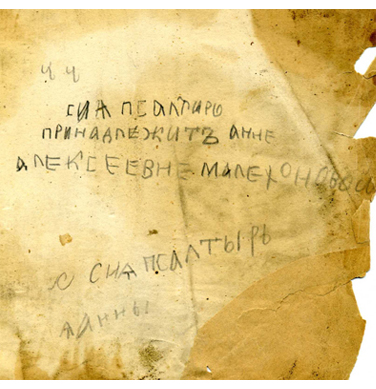 ч ч
сия псалтырь
принадлежитъ анне
алексеевне малехоновои
с сия псалтырь
анны